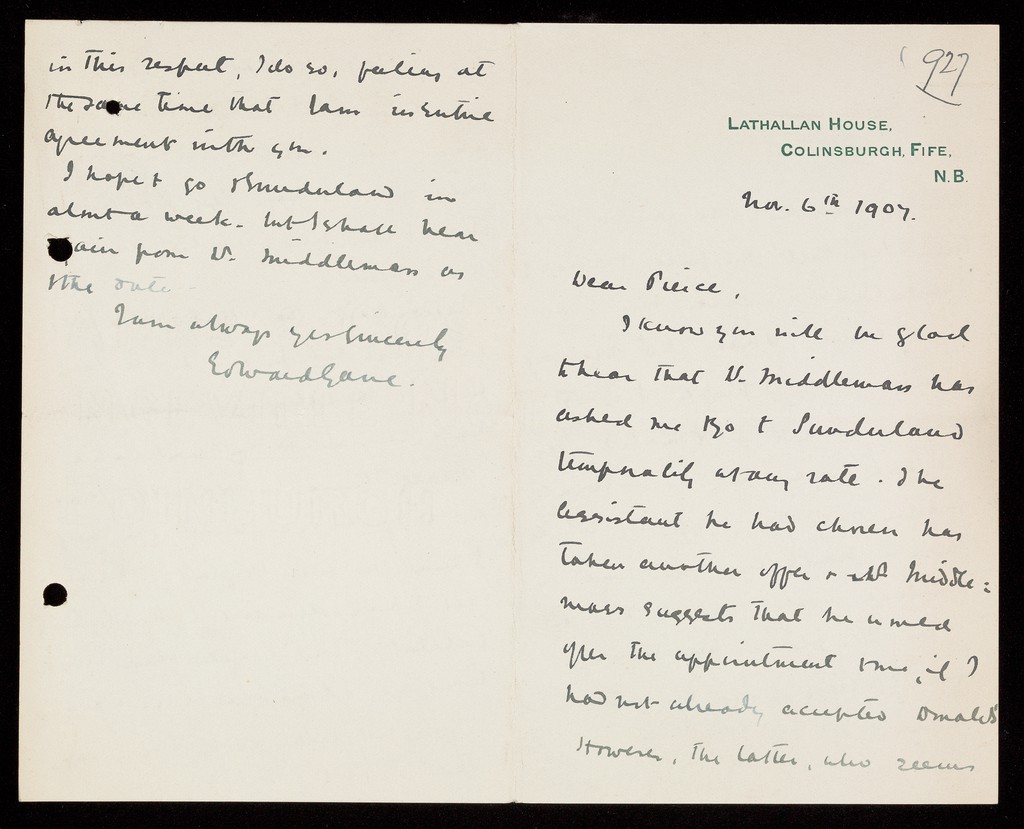 927
LATHALLAN HOUSE,
COLINSBURGH, FIFE,
N.B.
Nov. 6th 1907.
Dear Pierce,
I know you will be glad
to hear that Dr. Middlemass has
asked me to go to Sunderland
temporarily at any rate. The
assistant he had chosen has
taken another offer & Dr Middle=
mass suggests that he would
offer the appointment to me, if I
had not already accepted Donald's
However, the latter, who seems
in this respect, I do so, feeling at
the same time that I am in entire
agreement with you.
I hope to go to Sunderland in
about a week. but I shall hear
again from Dr. Middlemass as
to the date
I am always yrs sincerely
Edward Gane.